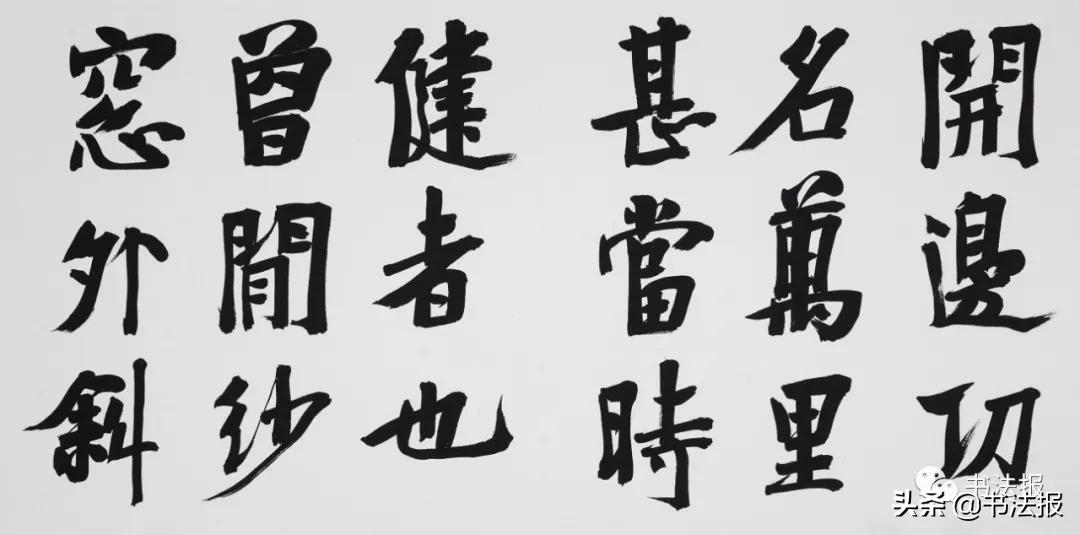 開邊功
名萬里
甚當時
健者也
曾閒紗
窓外斜
书法报
头条 @书法报